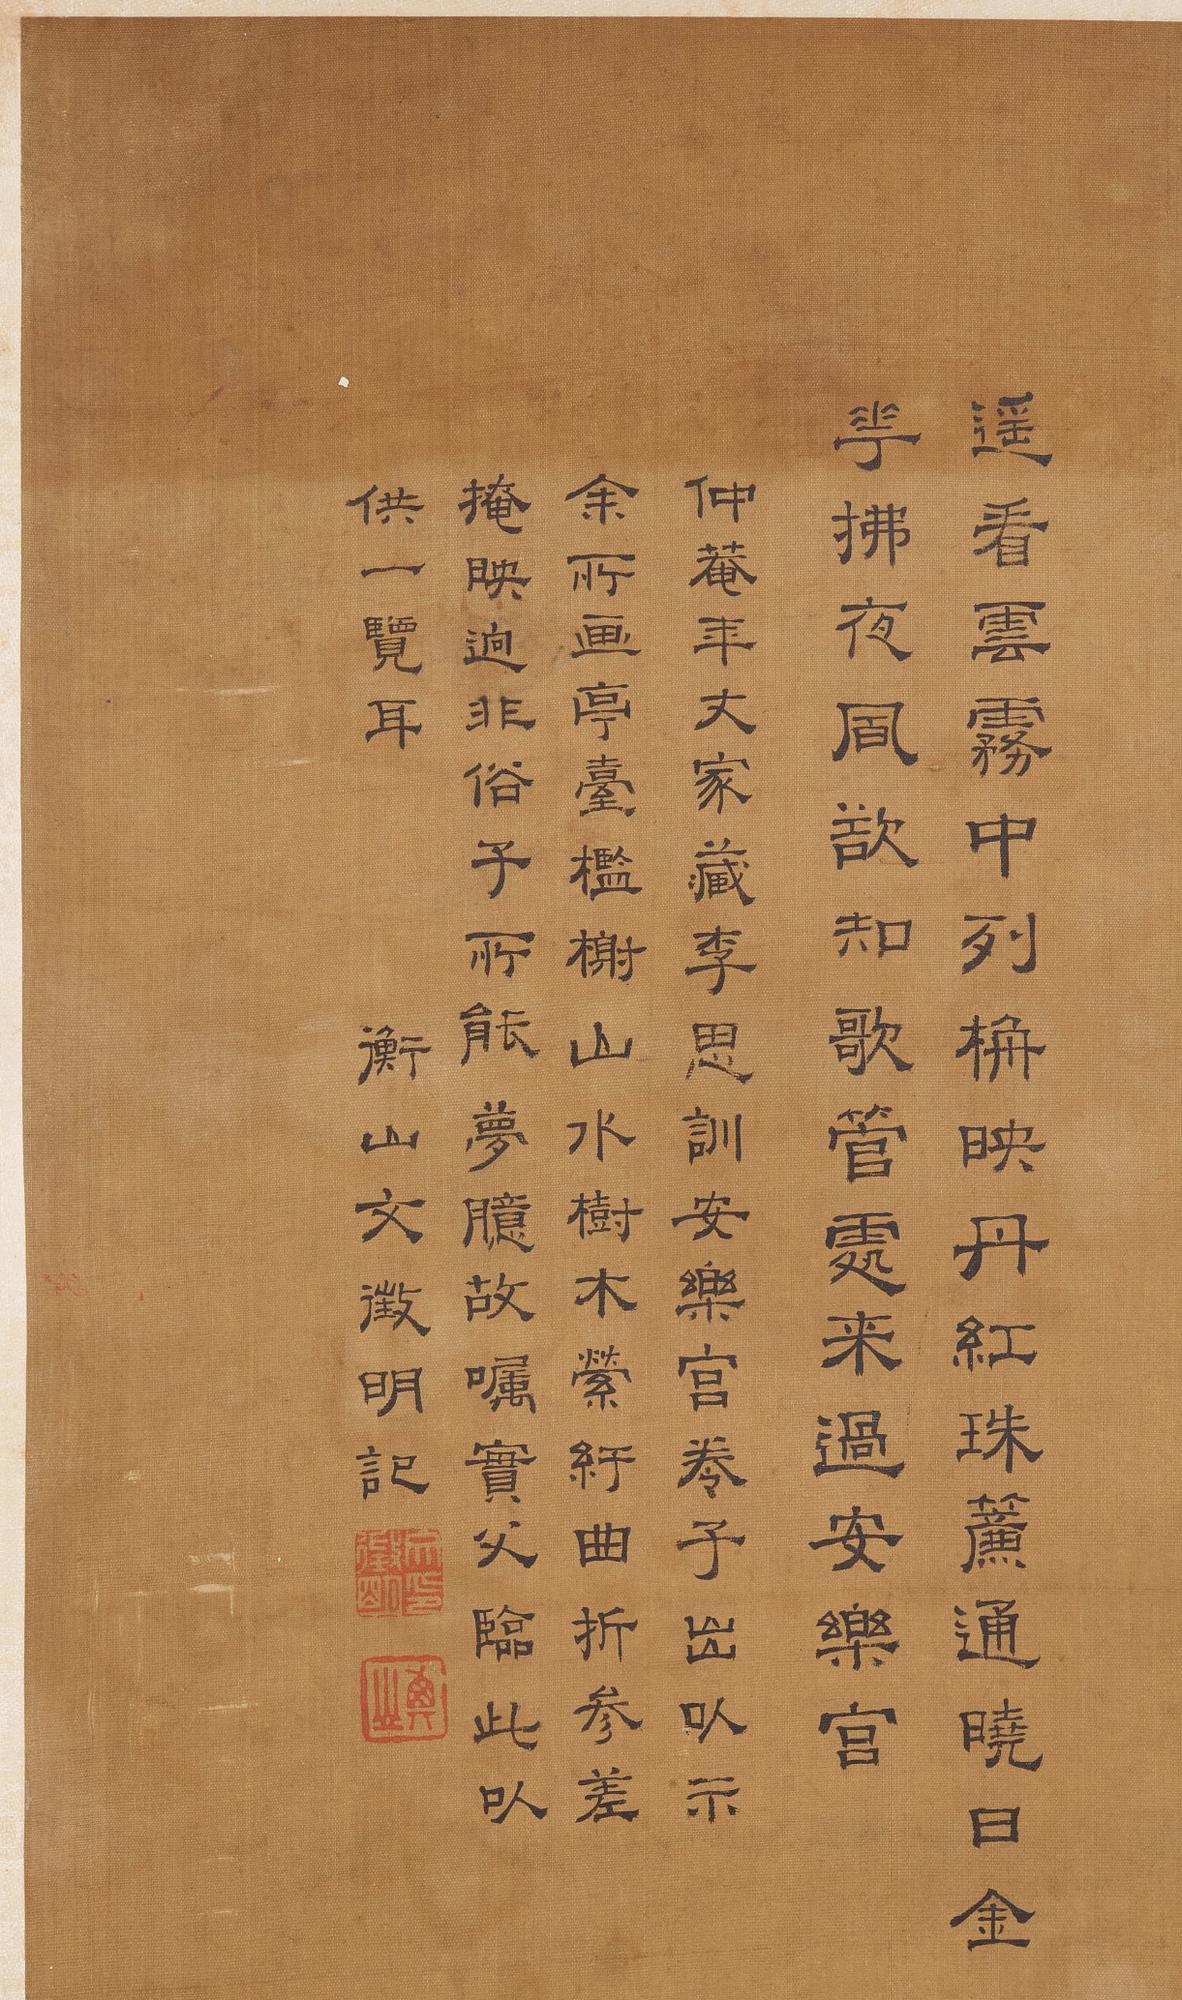 遥看雲霧中列桷映丹紅珠簾通曉日金
華拂夜風欲知歌管處来過安樂宮
仲菴年丈家藏李思訓安樂宮卷子出以示
余所画亭臺檻榭山水樹木縈紆曲折参差
掩映迥非俗子所能夢臆故嘱實父臨此以
供一覽耳
衡山文徵明記